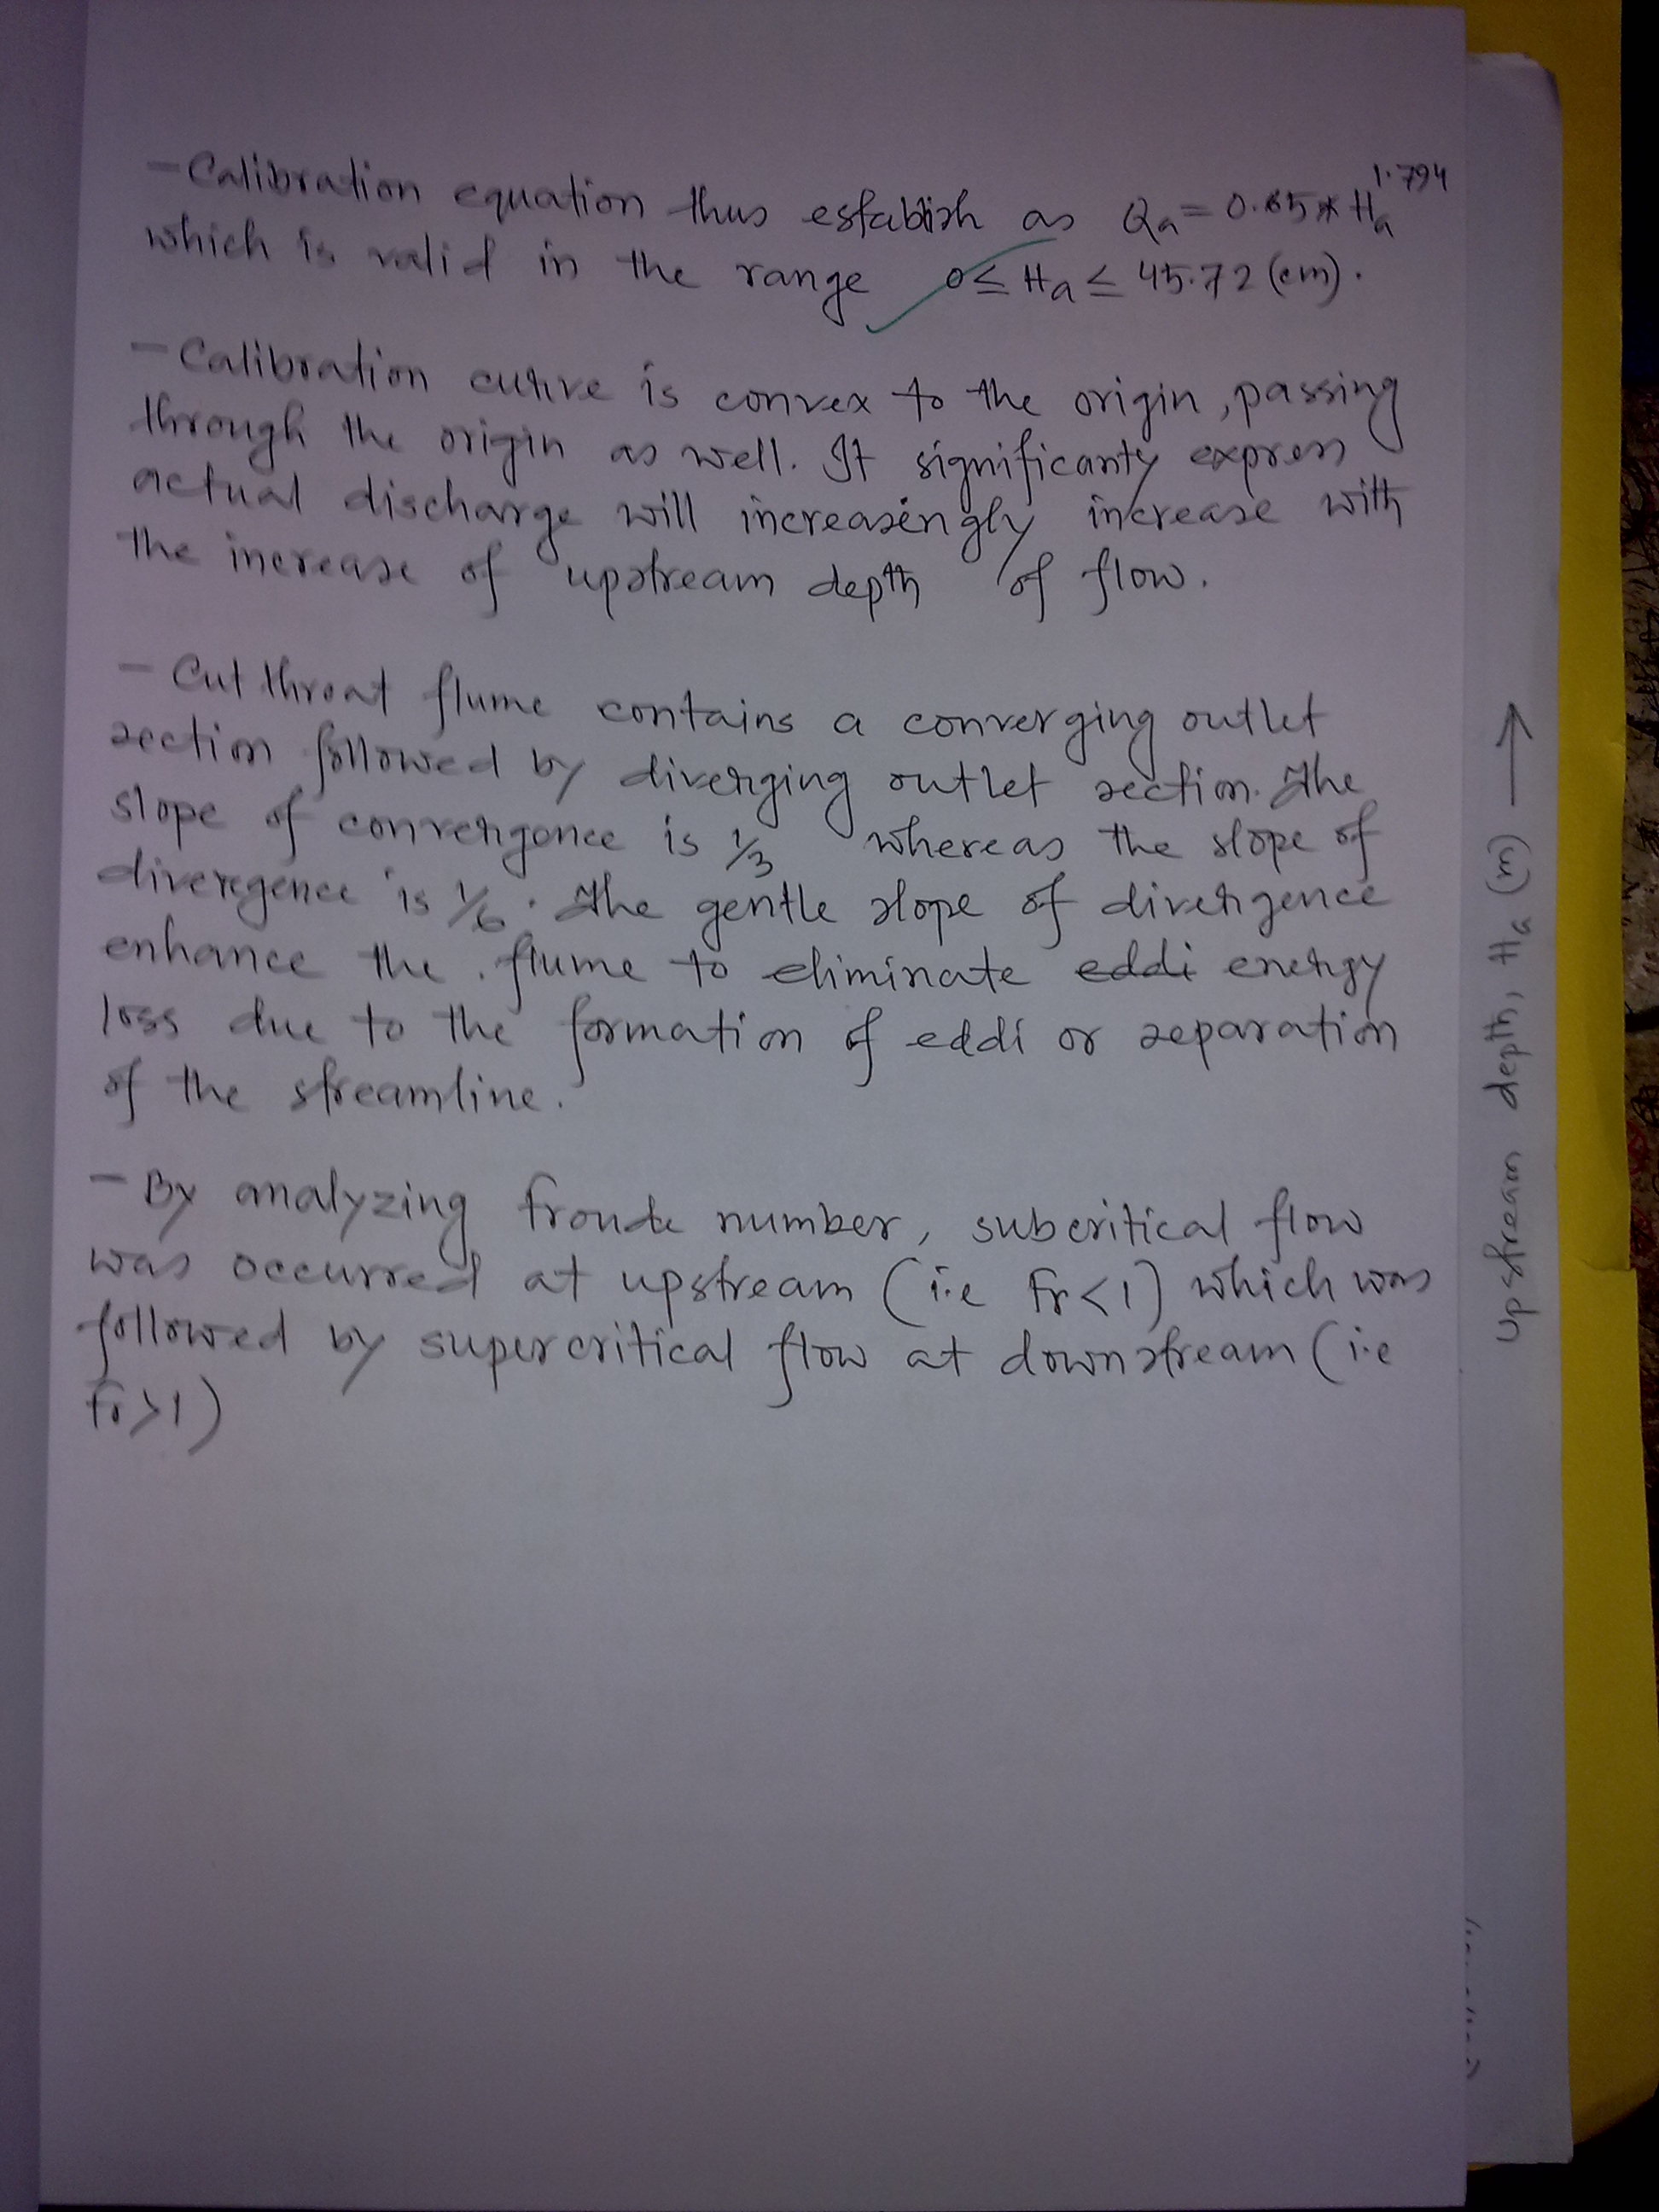 - Calibration equation thus establish as Qa = 0.65 * Ha^1.794
which is valid in the range 0 ≤ Ha ≤ 45.72 (cm).
- Calibration curve is convex to the origin, passing
through the origin as well. It significanty express
actual discharge will increasingly increase with
the increase of upstream depth of flow.
- Cut throat flume contains a converging outlet
section followed by diverging outlet section. The
slope of convergence is 1/3 whereas the slope of
divergence is 1/6. The gentle slope of divergence
enhance the flume to eliminate eddi energy
loss due to the formation of eddi or separation
of the streamline.
- By analyzing froude number, subcritical flow
was occurred at upstream (i.e Fr<1) which was
followed by supercritical flow at downstream (i.e
Fr>1)
upstream depth, Ha (m) →